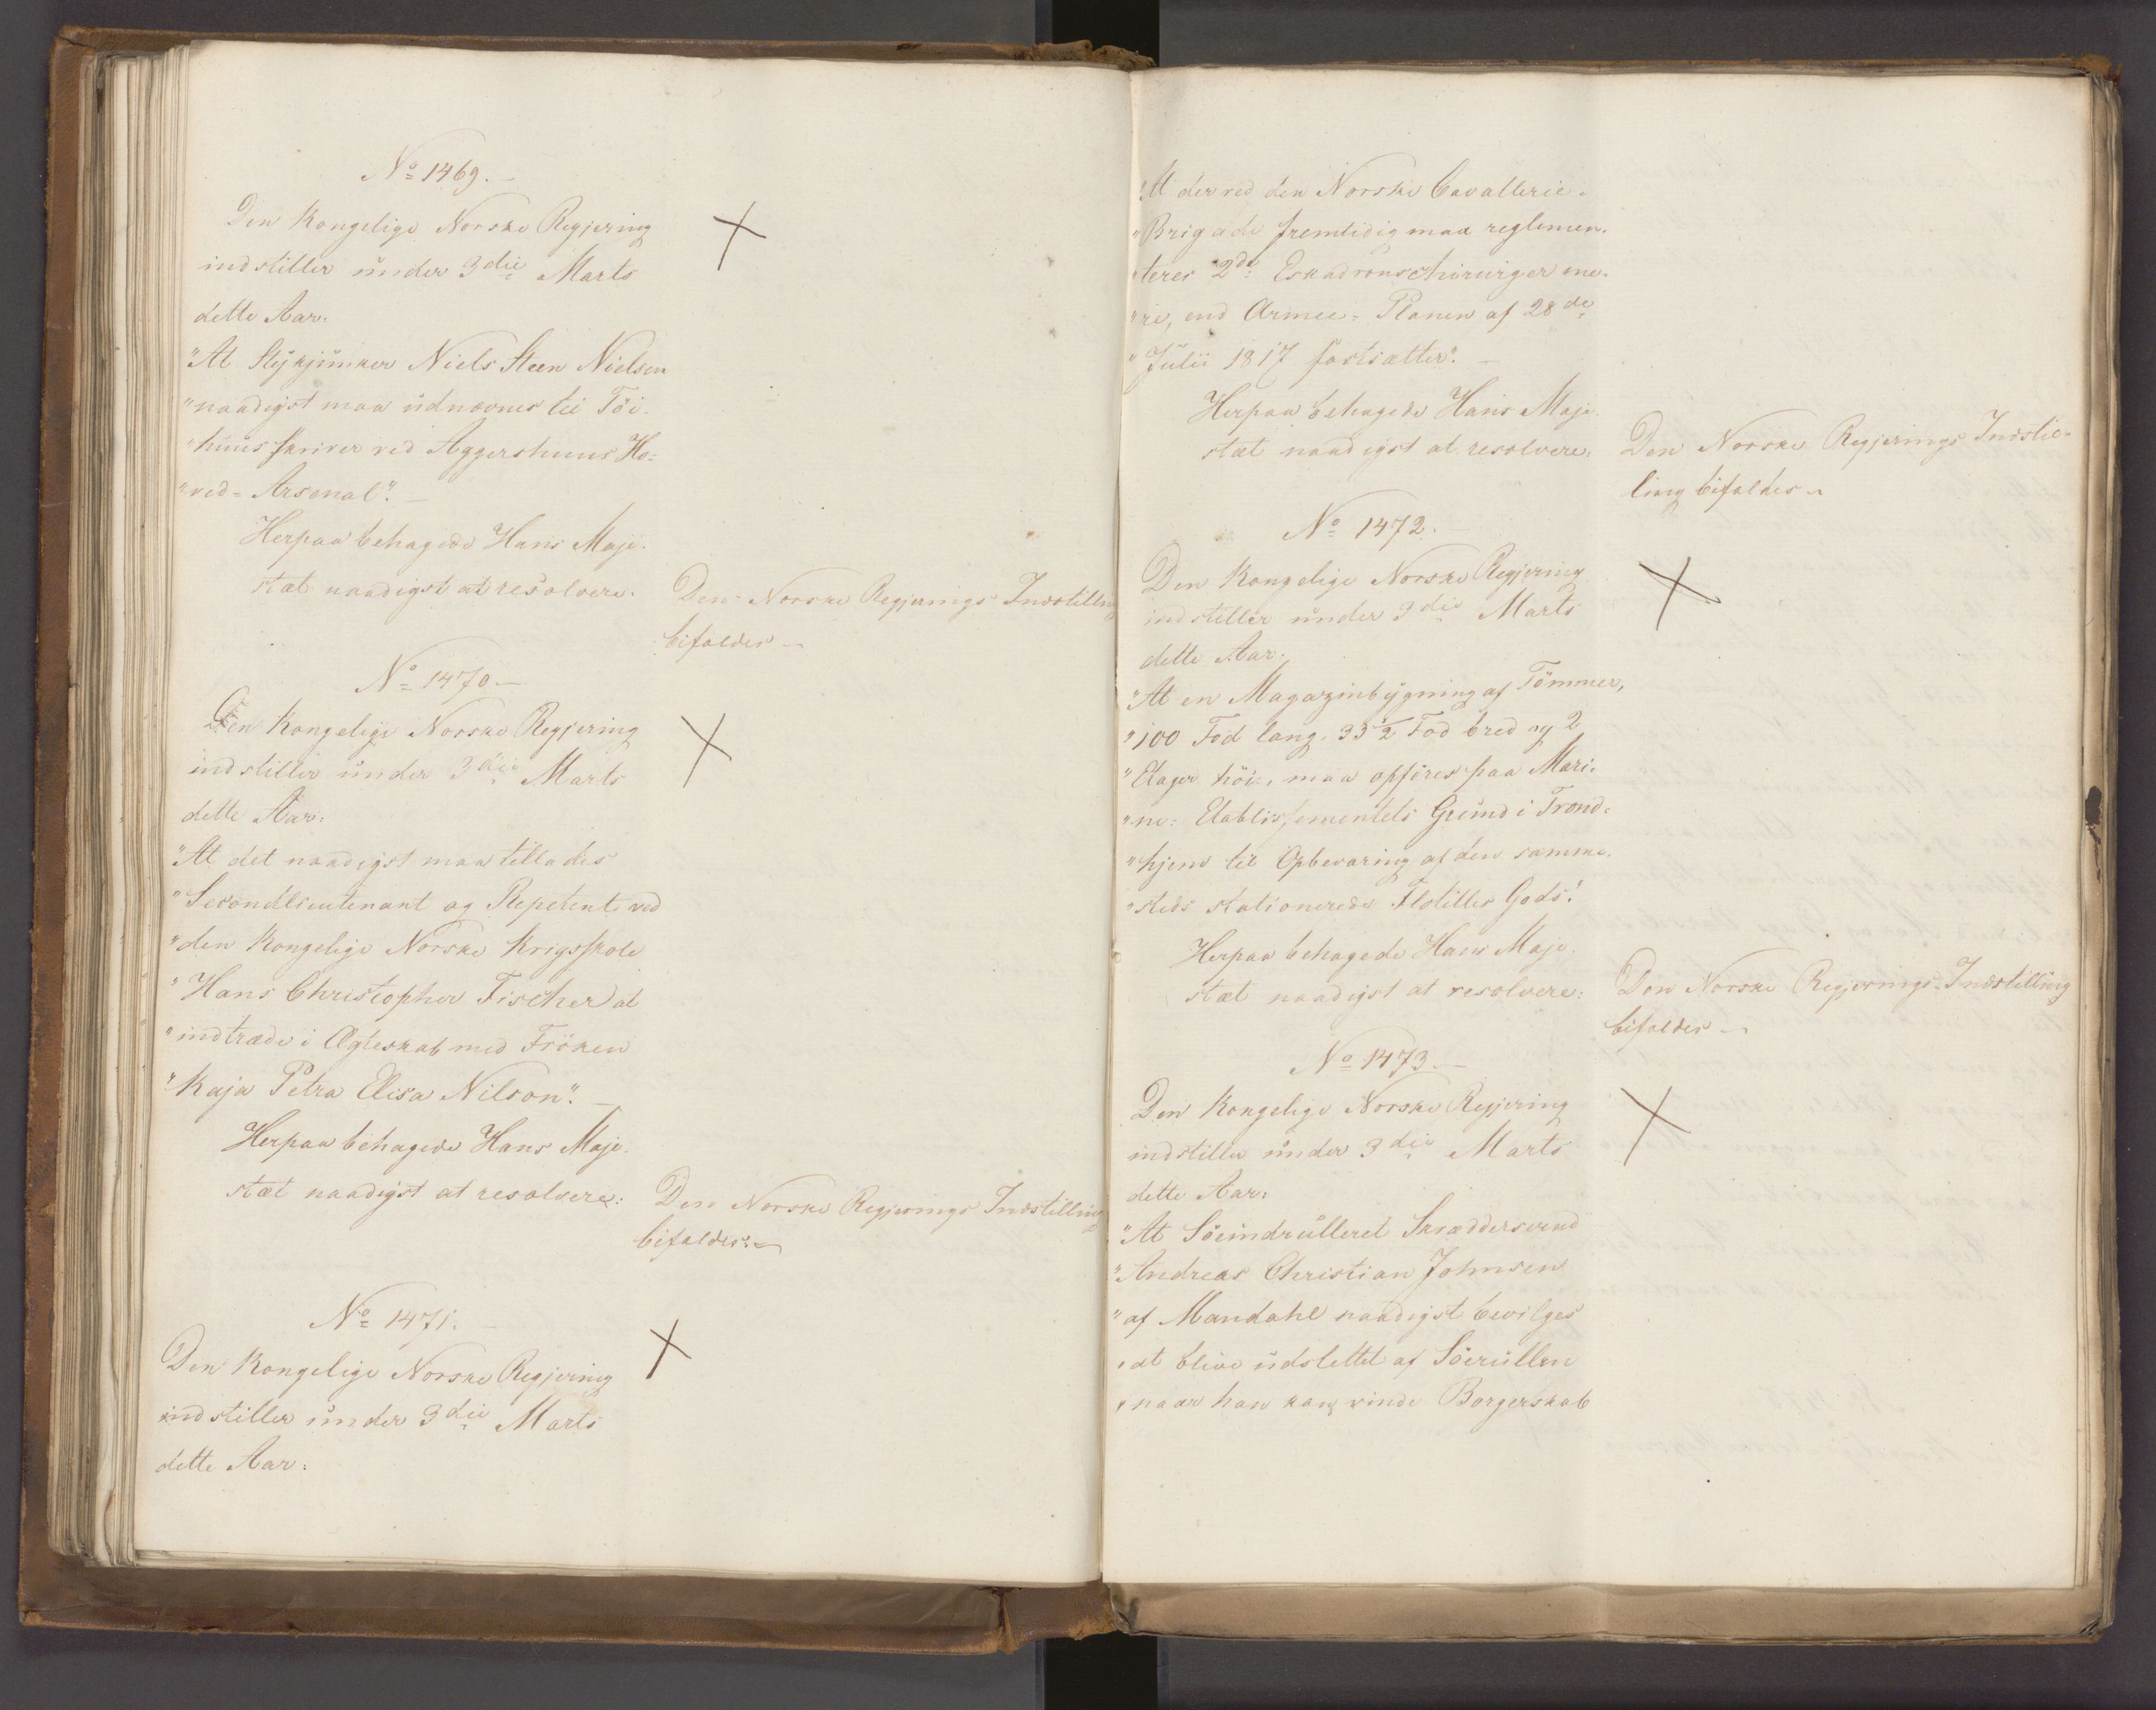 No 1469.
Den Kongelige Norske Regjering
indstiller under 3die Marts
dette Aar:
"At Stykjunker Niels Steen Nielsen
"naadigst maa udnævnes til Töi-
"huusskriver ved Aggershuus Ho-
"ved-Arsenal".
Herpaa behagede Hans Maje-
stæt naadigst at resolvere:
Den Norske Regjerings Indstilling
bifaldes
No 1470
Den Kongelige Norske Regjering
indstiller under 3die Marts
dette Aar:
"At det naadigst maa tillades
"Secondlieutenant og Repetent ved
"den Kongelige Norske Krigsskole
"Hans Christopher Fischer at
"indtræde i Ægteskab med Fröken
"Kaja Petra Elisa Nilson".
Herpaa behagede Hans Maje-
stæt naadigst at resolvere:
Den Norske Regjerings Indstilling
bifaldes.
No 1471.
Den Kongelige Norske Regjering
indstiller under 3die Marts
dette Aar:
"At der ved den Norske Cavallerie-
"Brigade fremtidig maa reglemen-
"teres 2de Eskadronschirurger me-
"re, end Armee-Planen af 28de
"Julii 1817 fastsætter".
Herpaa behagede Hans Maje-
stæt naadigst at resolvere:
Den Norske Regjerings Indstil-
ling bifaldes
No 1472.
Den Kongelige Norske Regjering
indstiller under 3die Marts
dette Aar:
"At en Magazinbygning af Tömmer,
"100 Fod lang, 33 1/2 Fod bred og 2
"Etager höi, maa opföres paa Mari-
"ne-Etablissementets Grund i Trond-
"hjem til Opbevaring af den samme-
"steds stationerede Flotilles Gods".
Herpaa behagede Hans Maje-
stæt naadigst at resolvere:
Den Norske Regjerings Indstilling
bifaldes
No 1473.
Den Kongelige Norske Regjering
indstiller under 3die Marts
dette Aar:
"At Söeindrulleret Skræddersvend
"Andreas Christian Johnsen
"af Mandahl naadigst bevilges
"at blive udslettet af Söerullen
"naar han kan vinde Borgerskab